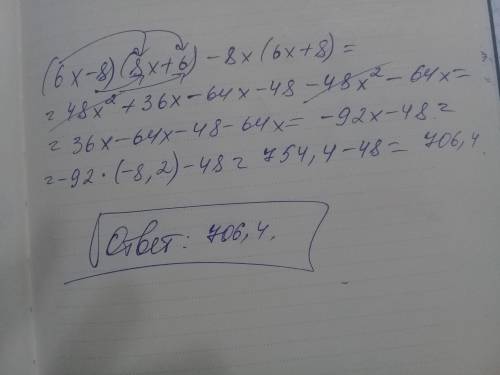 (6x-8)(8x+6)-8x(6x+8)=
= 48x²+36x-64x-48-48x²-64x=
= 36x-64x-48-64x= -92x-48=
=-92·(-8,2)-48= 754,4-48= 706,4.
Ответ: 706,4.